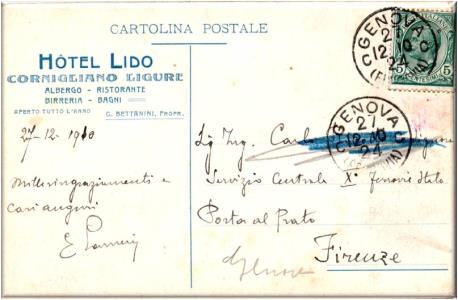 CARTOLINA POSTALE
HÔTEL LIDO
CORNIGLIANO LIGURE
ALBERGO - RISTORANTE
BIRRERIA - BAGNI
APERTO TUTTO L'ANNO G. BETTANINI, PROPR.
27-12-1910
Mille ringraziamenti e
cari auguri
E.
GENOVA
27
12.10
24
(FERROVIA)
5
GENOVA
27
12.10
24
(FERROVIA)
Sig Ing. Carlo
Servizio Centrale Xº Ferrovie Stato
Porta al Prato
Firenze
Genova